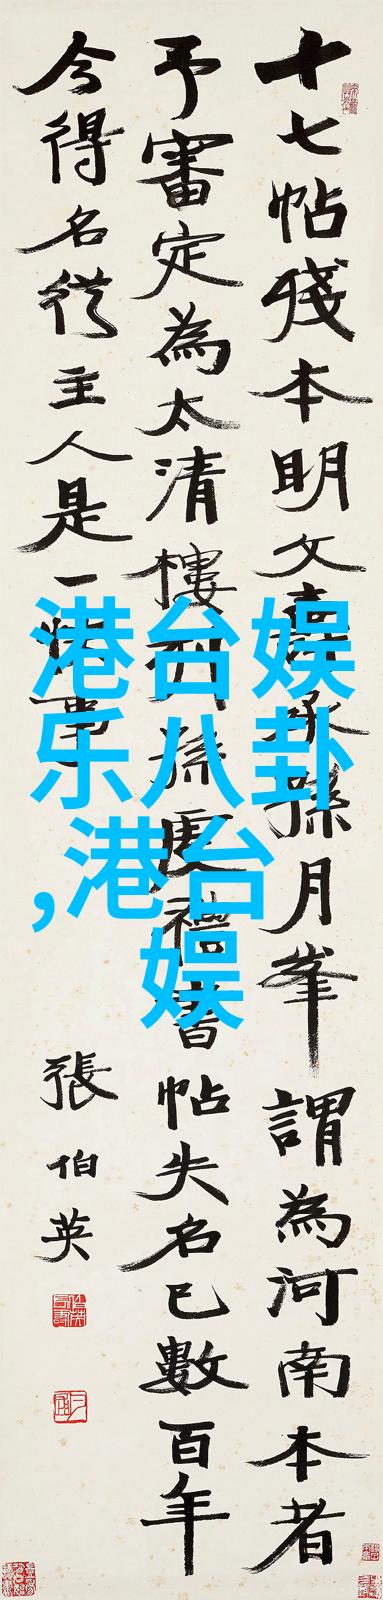 十七帖殘本明文承孫月峯謂為河南本者
予審定為太清樓刊孫虔禮書帖失名已數百年
今得名從主人是一快事
張伯英
港台娱
乐八卦
,港台
娱